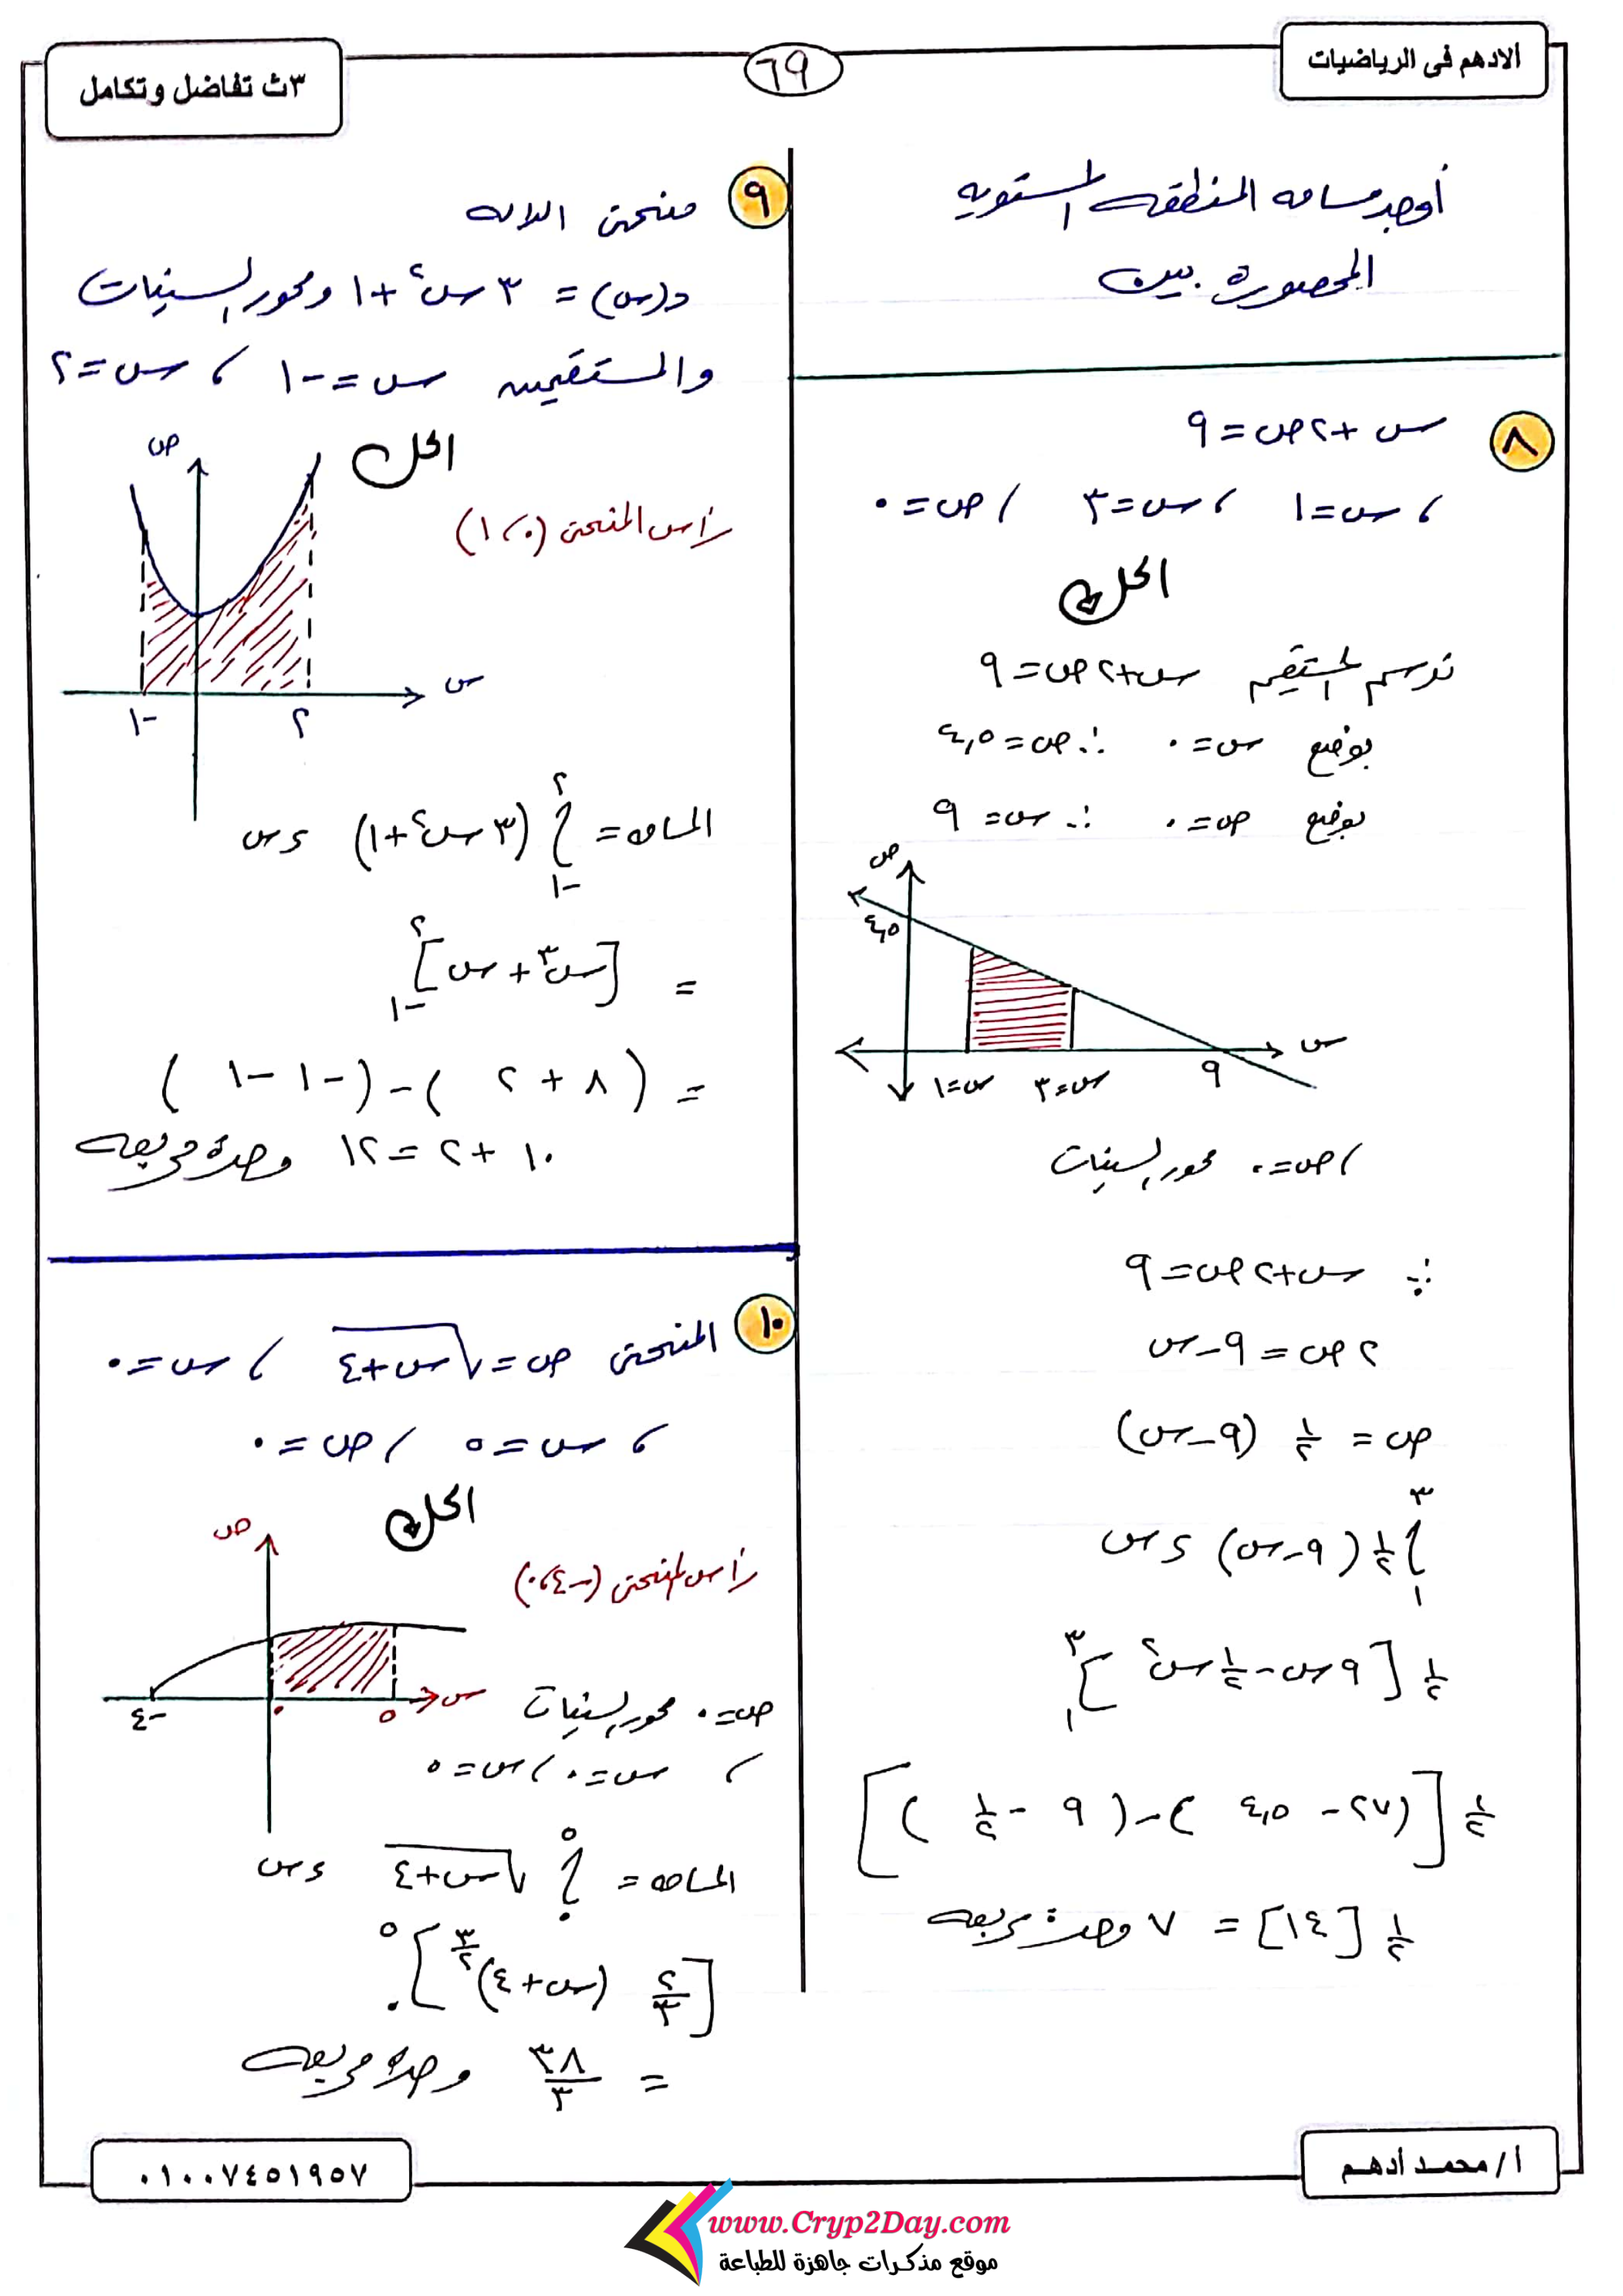 الادهم فى الرياضيات
٦٩
٣ث تفاضل وتكامل
أوجد مساحه المنطقه المستويه
المحصوره بين
٨
س + ٢ص = ٩
، س = ١ ، س = ٣ ، ص = ٠
الحل
نرسم المستقيم س + ٢ص = ٩
بوضع س = ٠ ∴ ص = ٤,٥
بوضع ص = ٠ ∴ س = ٩
ص
٤,٥
س
س = ١ س = ٣ ٩
، ص = ٠ محور السينات
∵ س + ٢ص = ٩
٢ص = ٩ - س
ص = ١/٢ (٩ - س)
∫₁³ ١/٢ (٩ - س) ءس
١/٢ [٩س - ١/٢ س²]₁³
١/٢ [(٢٧ - ٤,٥) - (٩ - ١/٢)]
١/٢ [١٤] = ٧ وحدة مربعه
٩
منحنى الداله
د(س) = ٣س² + ١ ومحور السينات
والمستقيمين س = -١ ، س = ٢
الحل
ص
رأس المنحنى (٠، ١)
س
-١ ٢
المساحه = ∫₋₁² (٣س² + ١) ءس
= [س³ + س]₋₁²
= (٨ + ٢) - (-١ - ١)
١٠ + ٢ = ١٢ وحدة مربعه
١٠
المنحنى ص = √(س + ٤) ، س = ٠
، س = ٥ ، ص = ٠
الحل
ص
رأس المنحنى (-٤، ٠)
س
-٤ ٠ ٥
ص = ٠ محور السينات
، س = ٠ ، س = ٥
المساحه = ∫₀⁵ √(س + ٤) ءس
[٢/٣ (س + ٤)^(٣/٢)]₀⁵
= ٣٨/٣ وحدة مربعه
أ/محمد أدهم
٠١٠٠٧٤٥١٩٥٧
www.Cryp2Day.com
موقع مذكرات جاهزة للطباعة